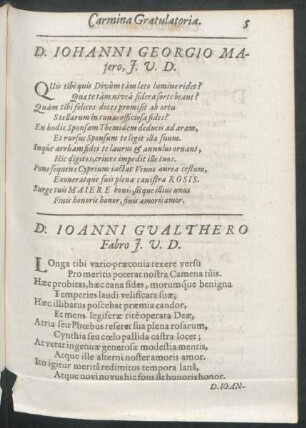 Carmina Gratulatoria. 5
D. IOHANNI GEORGIO MA-
jero, J. V. D.
QUis tibi quis Divûm tàm læto lumine ridet?
Qua te tàm niveâ sidera sorte beant?
Quàm tibi felices dotes promisit ab ortu
Stellarum in cunas officiosa fides?
En hodie Sponsam Themidem deducis ad aram,
Et rursus Sponsum te legit illa suum.
Inque arrham fidei te laurus & annulus ornant,
Hic digitos, crines impedit ille tuos.
Pone sequens Cyprium jactat Venus aurea cestum,
Exoneratque suis plena canistra ROSIS.
Surge tuis MAIERE bonis, sitque illius unus
Finis honoris honor, finis amoris amor.
D. IOANNI GVALTHERO
Fabro J. V. D.
LOnga tibi vario præconia texere versu
Pro meritis poterat nostra Camena tuis.
Hæc probitas, hæc cana fides, morumque benigna
Temperies laudi velificata suæ;
Hæc illibatus poscebat præmia candor,
Et mens legiferæ ritè operata Deæ,
Atria seu Phœbus reseret sua plena rosarum,
Cynthia seu cœlo pallida castra locet;
At vetat ingenuæ generosa modestia mentis,
Atque ille alterni noster amoris amor.
Ito igitur meritâ redimitus tempora lanâ,
Atque novi novus hic fons sit honoris honor.
D. IOAN-